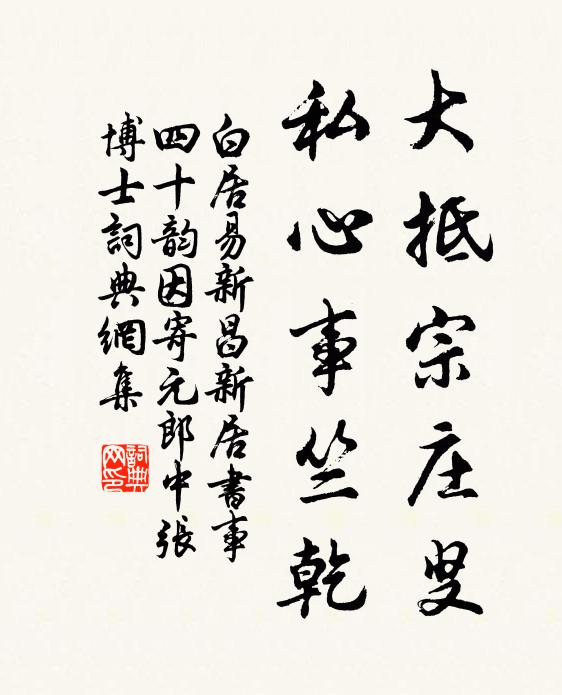 大抵宗庄叟
私心事竺乾
白居易新昌新居書事
四十韵因寄元郎中張
博士詞典網集
詞典網印